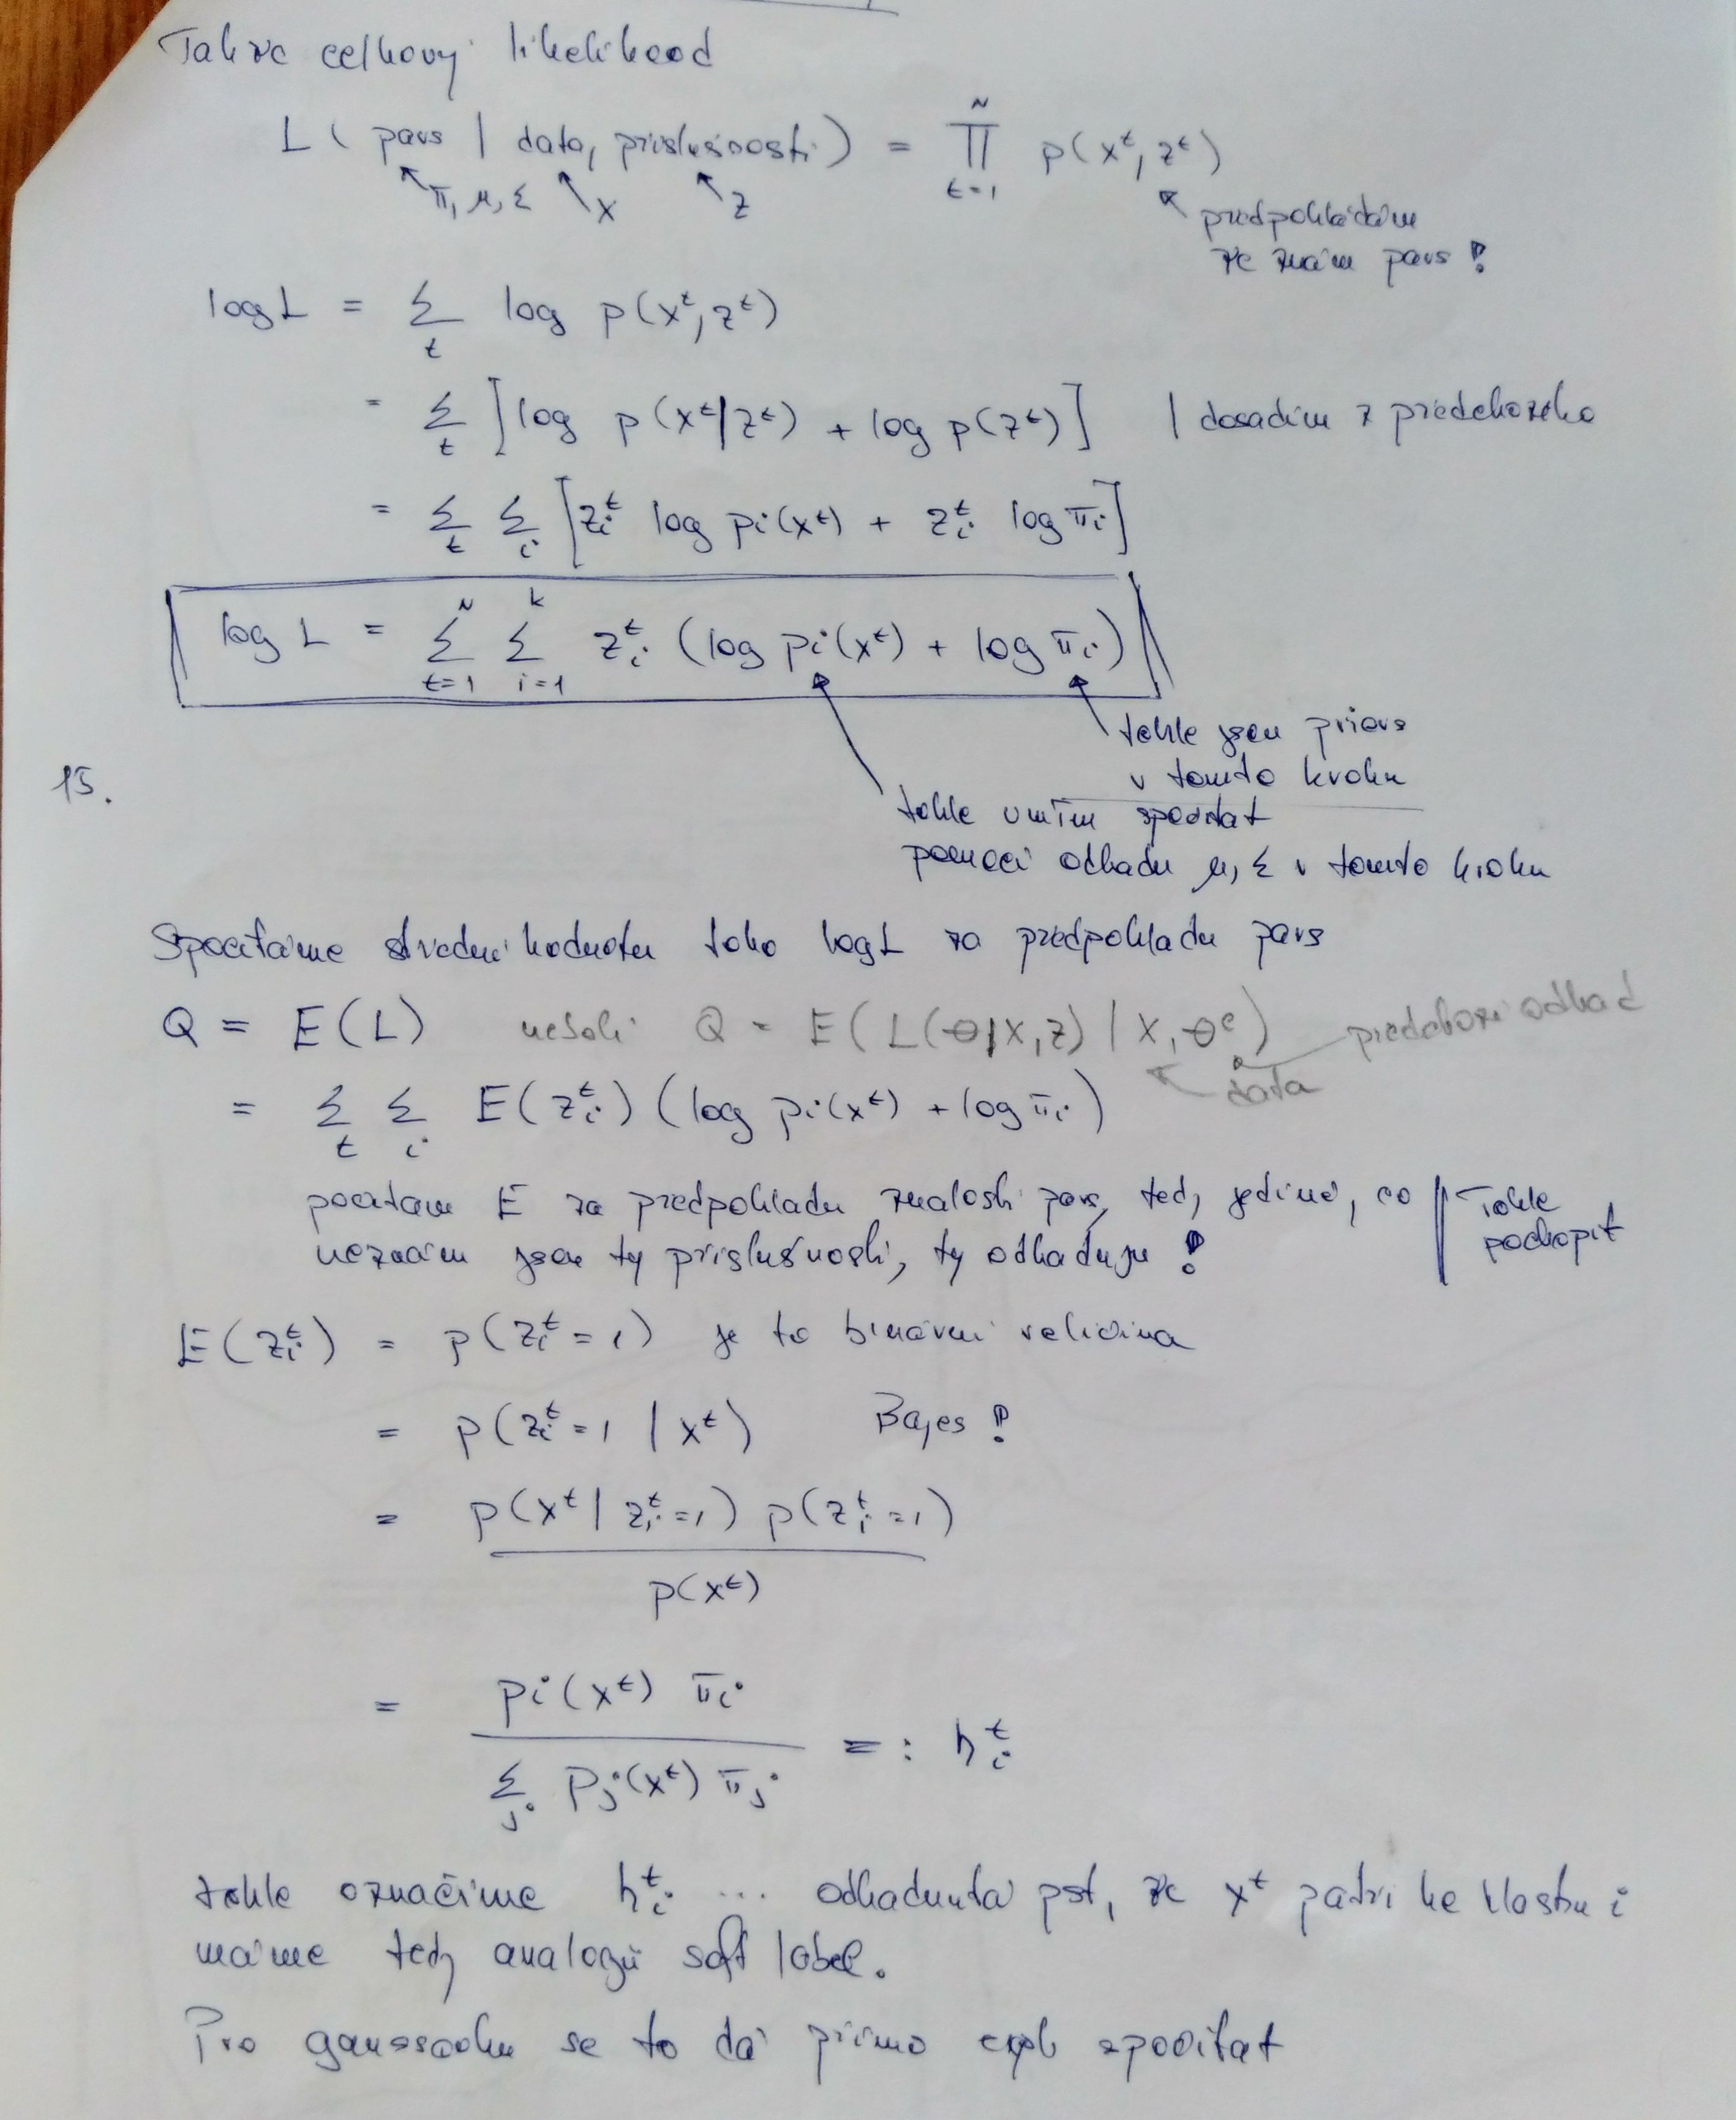 Takže celkový likelihood
L ( pars | data, příslušnosti ) = ∏ p(x^t, z^t)
N
t=1
π, μ, Σ
x
z
předpokládám
že znám pars !
log L = Σ_t log p(x^t, z^t)
= Σ_t [ log p(x^t|z^t) + log p(z^t) ] | dosadím z předchozího
= Σ_t Σ_i [ z_i^t log p_i(x^t) + z_i^t log π_i ]
log L = Σ_{t=1}^N Σ_{i=1}^k z_i^t (log p_i(x^t) + log π_i)
tohle jsou priors
v tomto kroku
15.
tohle umím spočítat
pomocí odhadu μ, Σ v tomto kroku
Spočítáme střední hodnotu toho log L za předpokladu pars
Q = E(L) neboli Q = E(L(θ|x,z) | x, θ^e) předchozí odhad
data
= Σ_t Σ_i E(z_i^t) (log p_i(x^t) + log π_i)
počítám E za předpokladu znalosti pars, tedy jediné, co
neznám jsou ty příslušnosti, ty odhaduju !
Tohle
pochopit
E(z_i^t) = p(z_i^t = 1) je to binární veličina
= p(z_i^t = 1 | x^t) Bayes !
= p(x^t | z_i^t = 1) p(z_i^t = 1)
p(x^t)
= p_i(x^t) π_i
Σ_j p_j(x^t) π_j
=: h_i^t
tohle označíme h_i^t ... odhadnutá pst, že x^t patří ke klastru i
máme tedy analogii soft label.
Pro gaussovku se to dá přímo expl spočítat